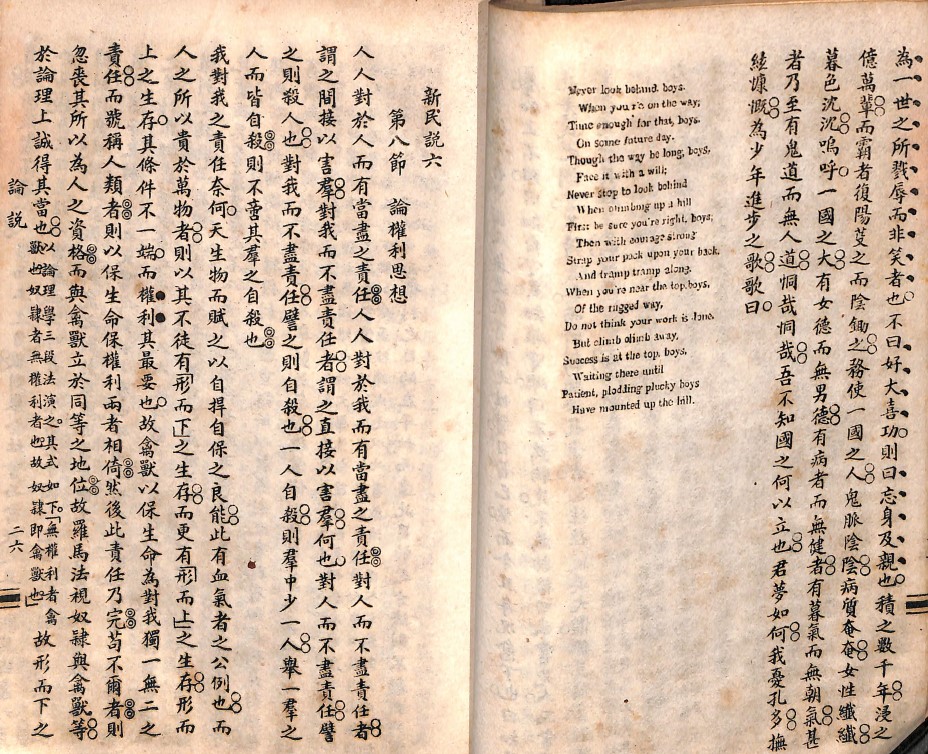 為一世之所戮辱而非笑者也不曰好大喜功則曰忘身及親也積之數千年浸之
億萬輩而霸者復陽芟之而陰鋤之務使一國之人鬼脈陰陰病質奄奄女性纖纖
暮色沈沈嗚呼一國之大有女德而無男德有病者而無健者有暮氣而無朝氣甚
者乃至有鬼道而無人道恫哉恫哉吾不知國之何以立也君夢如何我憂孔多撫
絃慷慨為少年進步之歌歌曰
Never look behind, boys,
When you're on the way;
Time enough for that, boys,
On some future day.
Though the way be long, boys,
Face it with a will;
Never stop to look behind
When climbing up a hill
First be sure you're right, boys;
Then with courage strong
Strap your pack upon your back,
And tramp tramp along.
When you're near the top, boys,
Of the rugged way,
Do not think your work is done,
But climb climb away,
Success is at the top, boys,
Waiting there until
Patient, plodding plucky boys
Have mounted up the hill.
新民説六
第八節 論權利思想
人人對於人而有當盡之責任人人對於我而有當盡之責任對人而不盡責任者
謂之間接以害羣對我而不盡責任者謂之直接以害羣何也對人而不盡責任譬
之則殺人也對我而不盡責任譬之則自殺也一人自殺則羣中少一人舉一羣之
人而皆自殺則不啻其羣之自殺也
我對我之責任奈何天生物而賦之以自捍自保之良能此有血氣者之公例也而
人之所以貴於萬物者則以其不徒有「形而下」之生存而更有「形而上」之生存形而
上之生存其條件不一端而權利其最要也故禽獸以保生命為對我獨一無二之
責任而號稱人類者則以保生命保權利兩者相倚然後此責任乃完苟不爾者則
忽喪其所以為人之資格而與禽獸立於同等之地位故羅馬法視奴隸與禽獸等
於論理上誠得其當也以論理學三段法演之其式如下。「無權利者禽獸也奴隸者無權利者也故奴隸即禽獸也」故形而下之
論説
二六